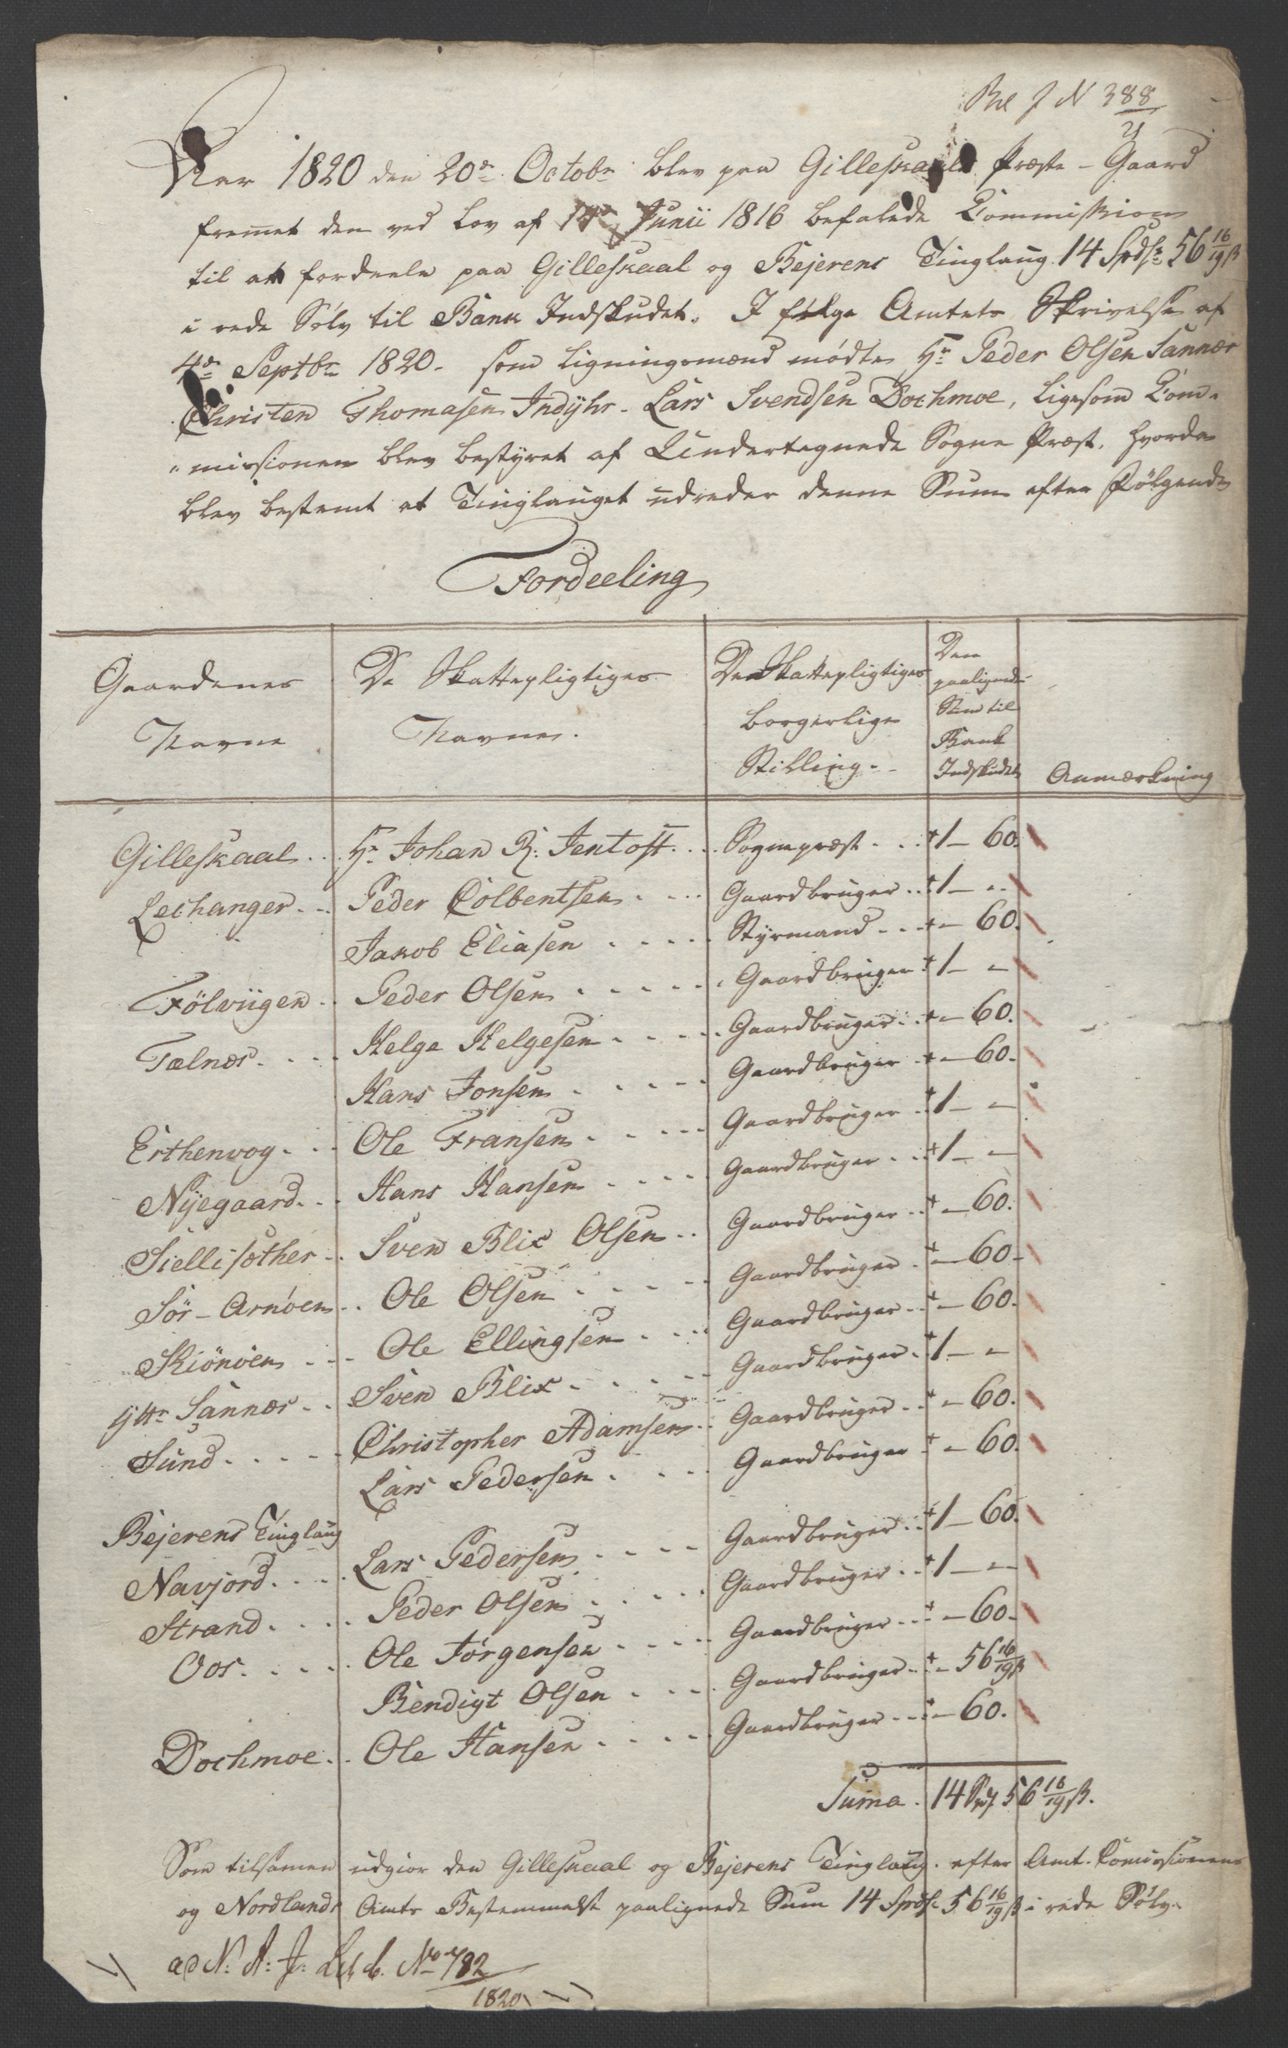 Bil J N 388
Aar 1820 den 20de Octobr blev paa Gilleskaals Præste-Gaard
fremet den ved Lov af Junii 1816 befalede Commission
til at fordeele paa Gilleskaal og Bejerens Tinglaug 14 Spds: 56 16/19 ß
i rede Sölv til Bank Indskudet. I følge Amtets Skrivelse af
4de Septbr 1820. som Ligningsmænd mödte Hr Peder Olsen Sannæs
Christen Thomasen Indÿhr. Lars Svendsen Dochmoe, ligesom Com-
missionen blev bestyret af Undertegnede Sogne Præst, hvorda
blev bestemt at Tinglauget udreder denne Sum efter fölgende
Fordeeling
Gaardenes Navne | De Skattepligtiges Navne. | Den Skattepligtiges borgerlige Stilling. | Den paalignede Sum til Bank Indskudet | Anmærkning
Gilleskaal .. Hr Johan R: Jentoft ... Sognepræst ... 1 - 60.
Lechanger ... Peder Colbentsen ... Gaardbruger .. 1 - -
Jakob Eliasen ..... Styrmand ... - 60.
Fölviigen .. Peder Olsen ...... Gaardbruger 1 - -
Tælnæs .... Helge Helgesen ..... Gaardbruger ... - 60.
Hans Jonsen ..... Gaardbruger .. - 60.
Erthenvog ... Ole Fransen ..... Gaardbruger .. 1 - -
Nÿegaard ... Hans Hansen ..... Gaardbruger ... 1 - -
Siellisæther .. Sven Blix Olsen .. Gaardbruger .. - 60.
Sör-Arnöen .. Ole Olsen ..... Gaardbruger . - 60.
Skiönöen .... Ole Ellingsen .... Gaardbruger .. - 60.
Ÿttr Sannæs .. Sven Blix ...... Gaardbruger . 1 - -
Sund ..... Christopher Adamsen .. Gaardbruger .. - 60.
Lars Pedersen .... Gaardbruger . - 60.
Bejerens Tinglaug
Navjord .... Lars Pedersen .... Gaardbruger .. 1 - 60.
Strand .... Peder Olsen ..... Gaardbruger .. 1 - -
Oos ..... Ole Jörgensen .... Gaardbruger ... - 60.
Bendigt Olsen .... Gaardbruger .. - 56 16/19 ß
Dochmoe .. Ole Hansen ..... Gaardbruger ... - 60.
Suma . 14 Spd 56 16/19 ß.
Som tilsamen udgior den Gilleskaal og Bejerens Tinglaug. efter Amt. Comissionens
og Nordlands Amts Bestemmelse paalignede Sum 14 Spds: 56 16/19 ß i rede Sölv.
ad N: A: J: Litb. No 782
1820